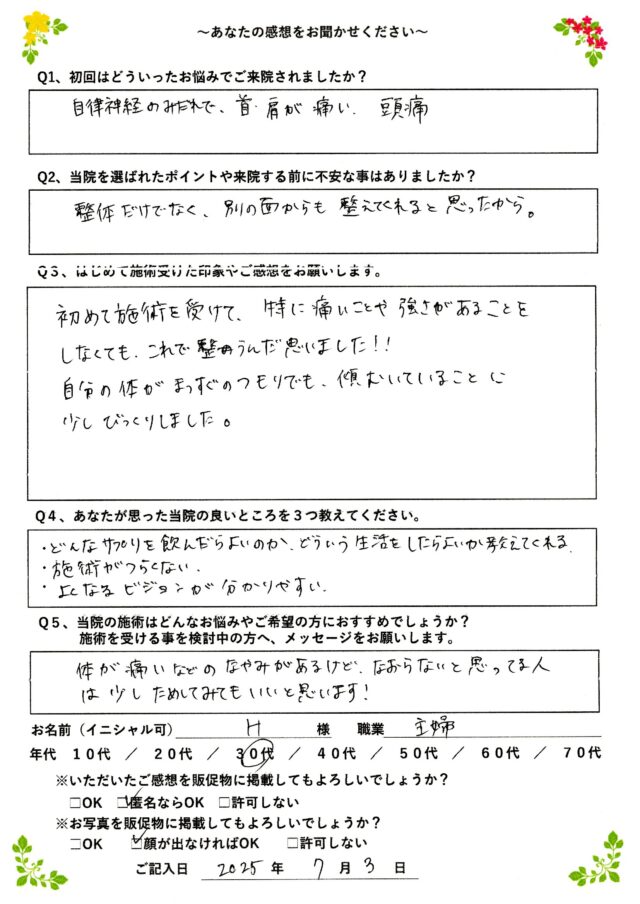 ~あなたの感想をお聞かせください~
Q1、初回はどういったお悩みでご来院されましたか？
自律神経のみだれで、首・肩が痛い. 頭痛
Q2、当院を選ばれたポイントや来院する前に不安な事はありましたか？
整体だけでなく、別の面からも整えてくれると思ったから。
Q3、はじめて施術受けた印象やご感想をお願いします。
初めて施術を受けて、特に痛いことや強さがあることを
しなくても、これで整うんだ思いました!!
自分の体がまっすぐのつもりでも、傾むいていることに
少しびっくりしました。
Q4、あなたが思った当院の良いところを3つ教えてください。
・どんなサプリを飲んだらよいのか、どういう生活をしたらよいか教えてくれる.
・施術がつらくない.
・よくなるビジョンが分かりやすい.
Q5、当院の施術はどんなお悩みやご希望の方におすすめでしょうか？
施術を受ける事を検討中の方へ、メッセージをお願いします。
体が痛いなどのなやみがあるけど、なおらないと思ってる人
は少しためしてみてもいいと思います!
お名前（イニシャル可） H 様 職業 主婦
年代 10代 / 20代 / 30代 / 40代 / 50代 / 60代 / 70代
※いただいたご感想を販促物に掲載してもよろしいでしょうか？
□OK ☑匿名ならOK □許可しない
※お写真を販促物に掲載してもよろしいでしょうか？
□OK ☑顔が出なければOK □許可しない
ご記入日 2025年 7月3日